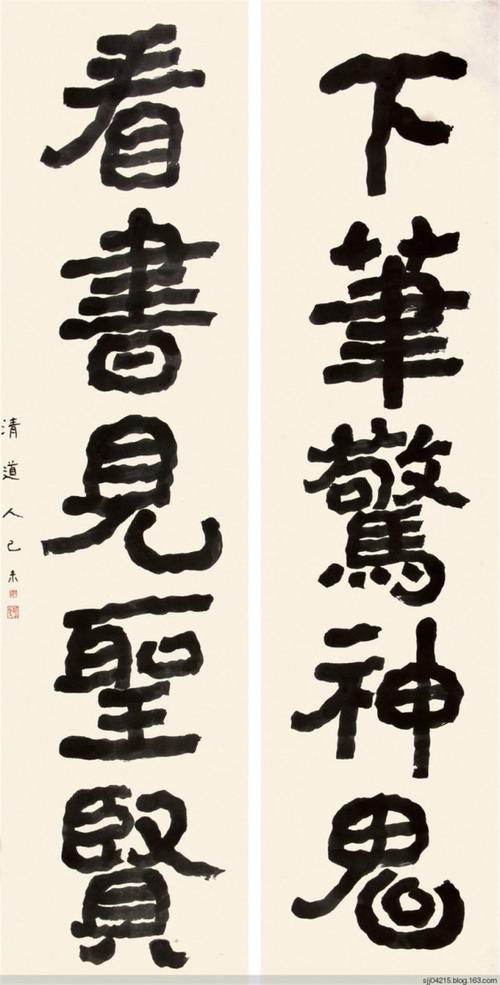 下筆驚神鬼
看書見聖賢
清道人己未
sjj04215.blog.163.com